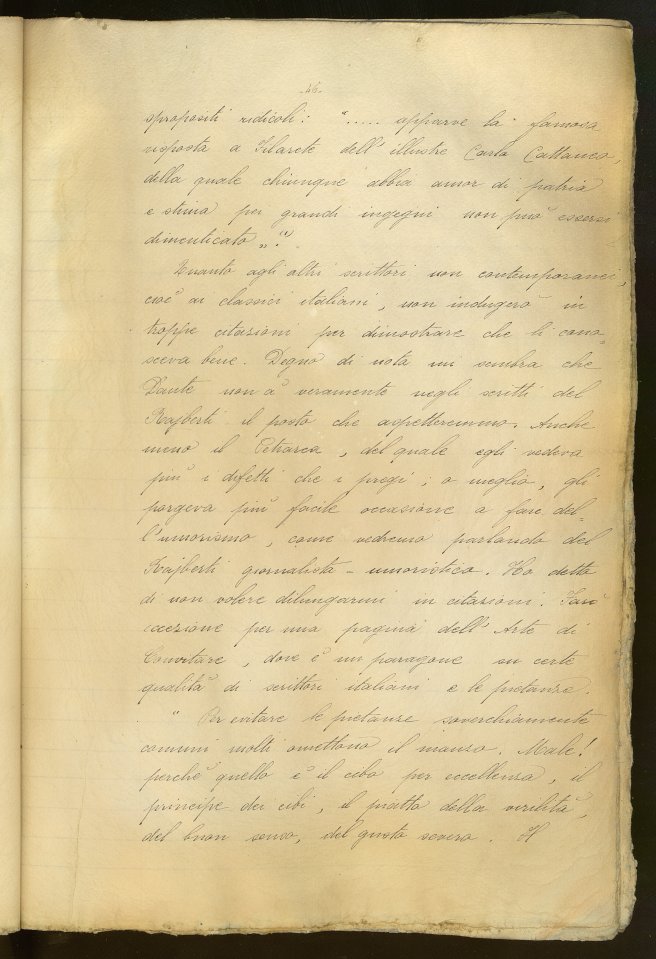 -46-
spropositi ridicoli: "..... apparve la famosa
risposta a Filarete dell'illustre Carlo Cattaneo,
della quale chiunque abbia amor di patria
e stima per grandi ingegni non può essersi
dimenticato „.
Quanto agli altri scrittori non contemporanei,
cioè ai classici italiani, non indugerò in
troppe citazioni per dimostrare che li cono=
sceva bene. Degno di nota mi sembra che
Dante non à veramente negli scritti del
Rajberti il posto che aspetteremmo. Anche
meno il Petrarca, del quale egli vedeva
più i difetti che i pregi; o meglio, gli
porgeva più facile occasione a fare del=
l'umorismo, come vedremo parlando del
Rajberti giornalista - umoristico. Ho detto
di non volere dilungarmi in citazioni. Farò
eccezione per una pagina dell'Arte di
Convitare, dove è un paragone su certe
qualità di scrittori italiani e le pietanze.
" Per evitare le pietanze soverchiamente
comuni molti omettono il manzo. Male!
perchè quello è il cibo per eccellenza, il
principe dei cibi, il piatto della virilità,
del buon senso, del gusto severo. Il